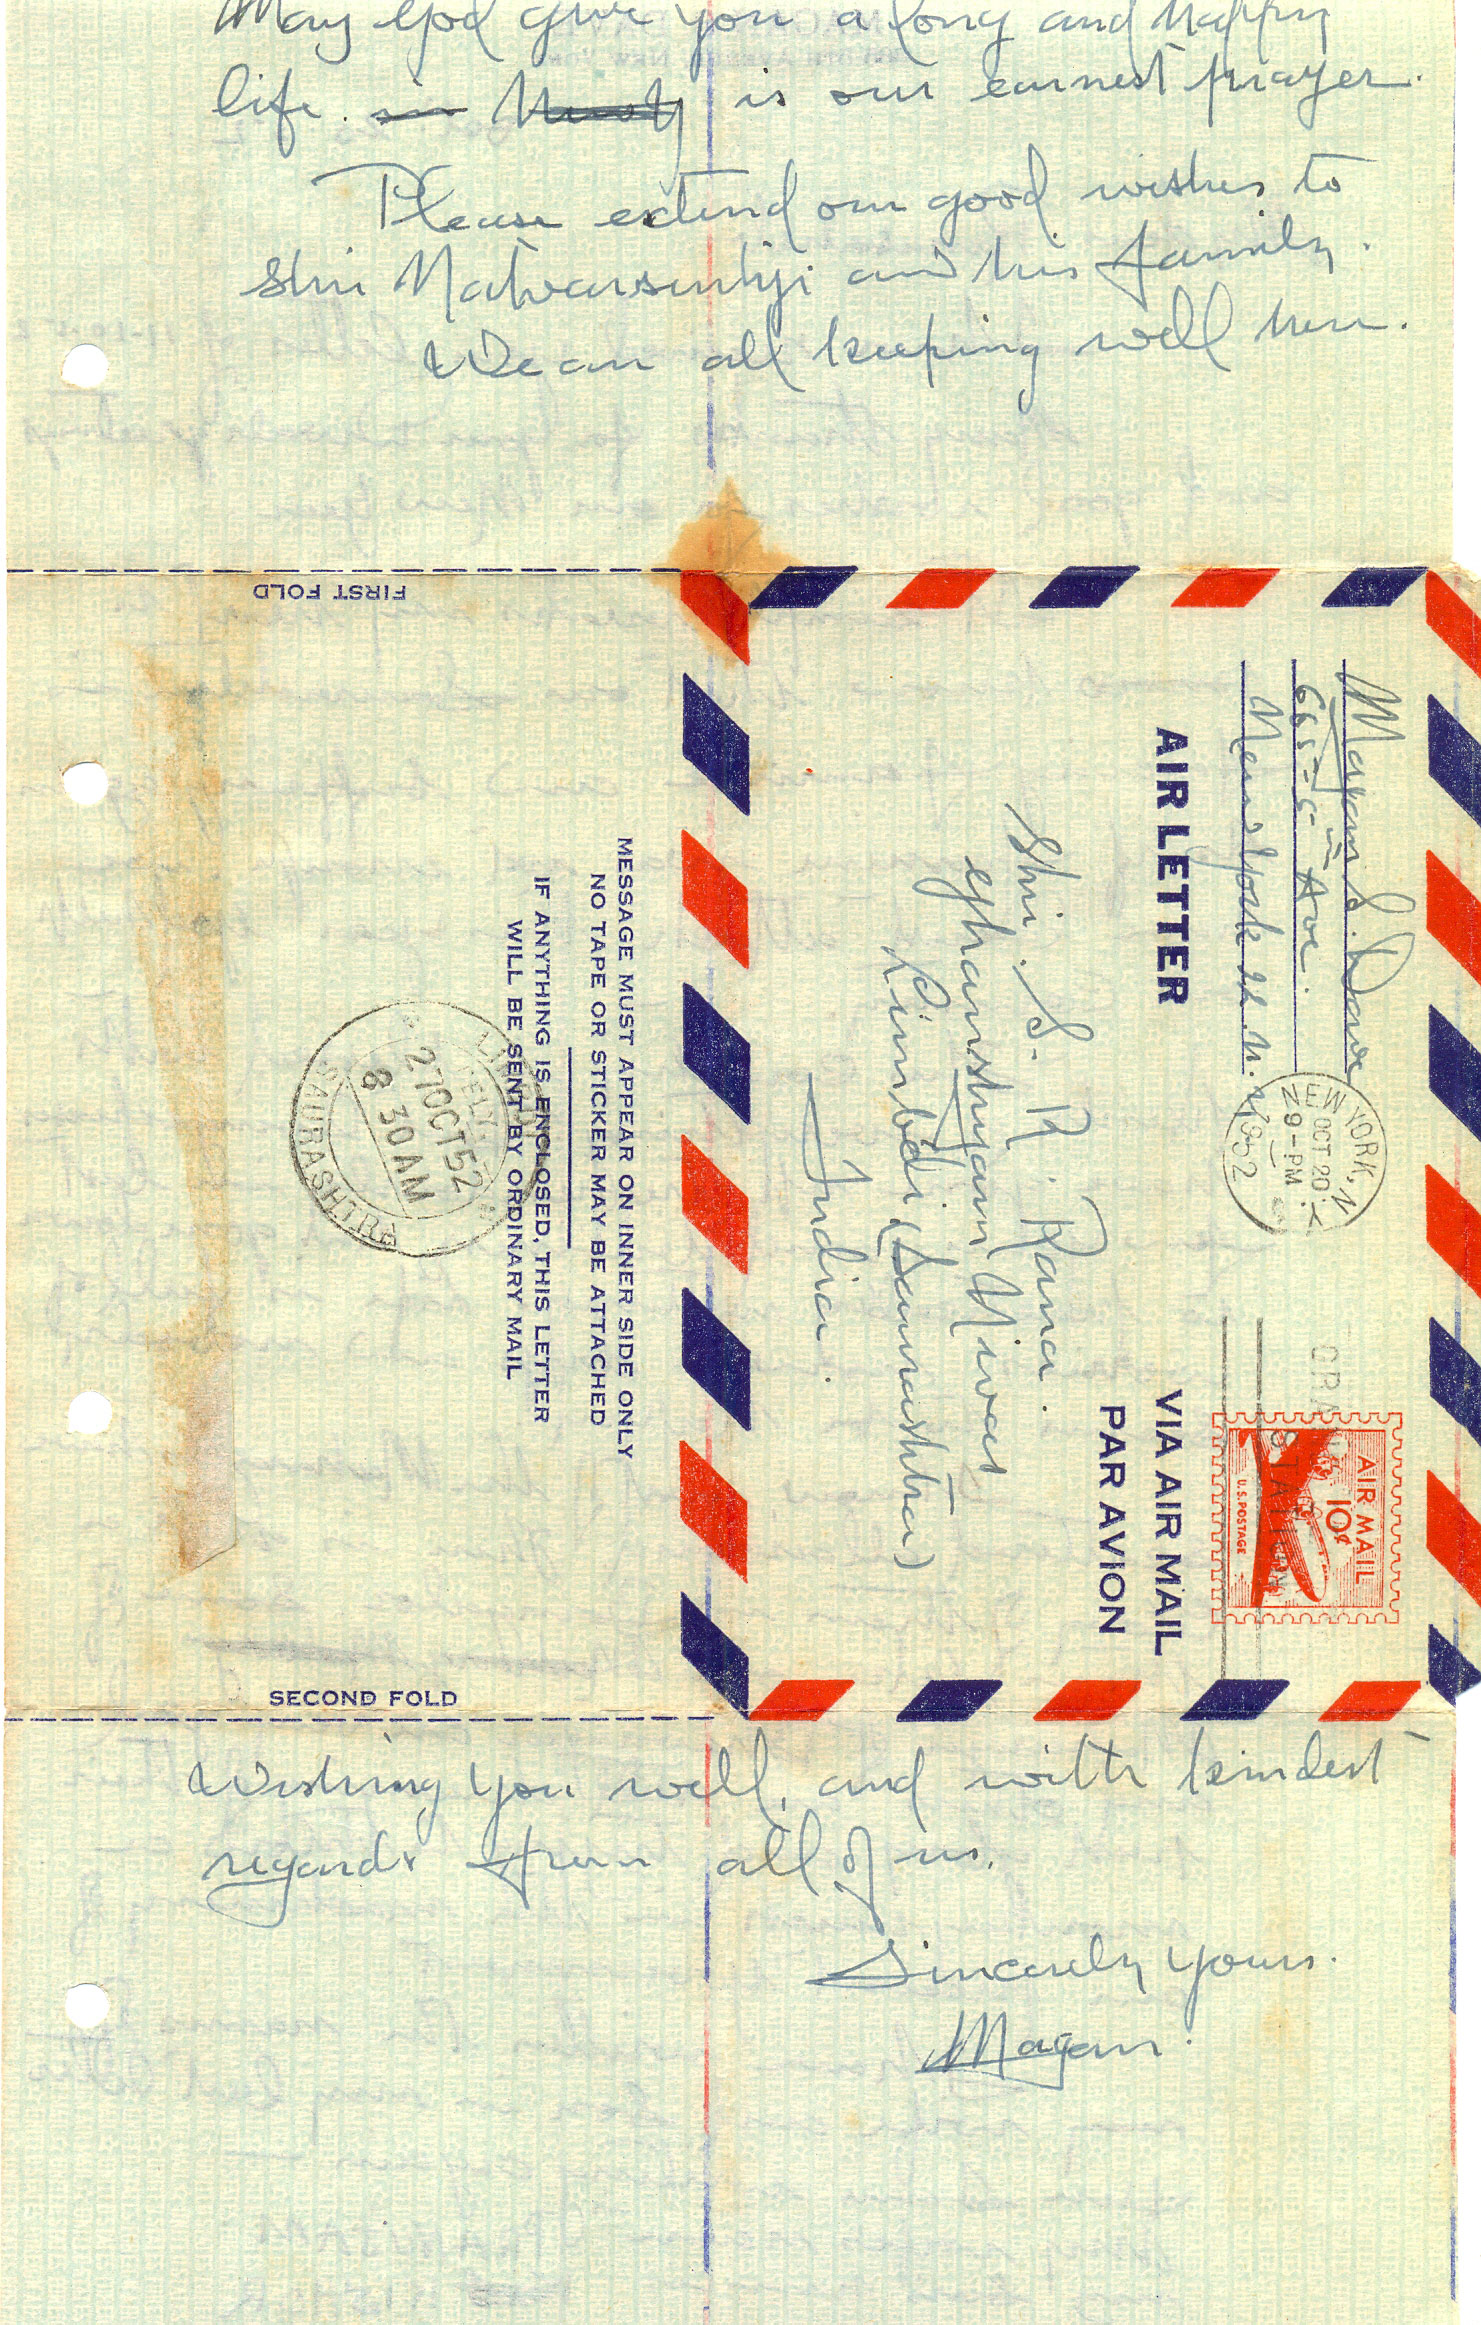 May God give you a long and happy
life. is our earnest prayer.
Please extend our good wishes to
Shri Natvarsinhji and his family.
We are all keeping well here.
FIRST FOLD
Magan S. Dave
665-5th Ave.
New York 22. N.Y.
NEW YORK, N.Y.
OCT 20
9-PM
1952
AIR LETTER
VIA AIR MAIL
PAR AVION
AIR MAIL
10¢
U.S. POSTAGE
STATION
Shri. S. R. Rana.
Ghanshyam Nivas
Limbdi (Saurashtra)
India.
MESSAGE MUST APPEAR ON INNER SIDE ONLY
NO TAPE OR STICKER MAY BE ATTACHED
IF ANYTHING IS ENCLOSED, THIS LETTER
WILL BE SENT BY ORDINARY MAIL
27OCT52
8 30AM
SAURASHTRA
SECOND FOLD
Wishing you well, and with kindest
regards from all of us.
Sincerely yours.
Magan.